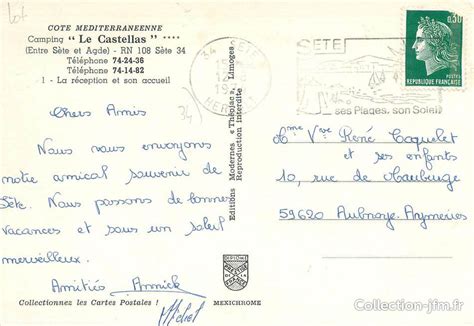 Lot
COTE MEDITERRANEENNE
Camping "Le Castellas" ****
(Entre Sète et Agde) - RN 108 Sète 34
Téléphone 74-24-36
Téléphone 74-14-82
1 - La réception et son accueil
34
Chers Amis
Nous vous envoyons
notre amical souvenir de
Sète. Nous passons de bonnes
vacances et sous un soleil
merveilleux.
Amitiés Annick
Michel
Collectionnez les Cartes Postales !
Editions Modernes « Théojac », Limoges.
Reproduction interdite
MEXICHROME
34 SETE
SETE
ses Plages, son Soleil
0,30
REPUBLIQUE FRANÇAISE
Mme Vve René Coquelet
et ses enfants
10, rue de Maubeuge
59620 Aulnoye-Aymeries
Collection-jfm.fr